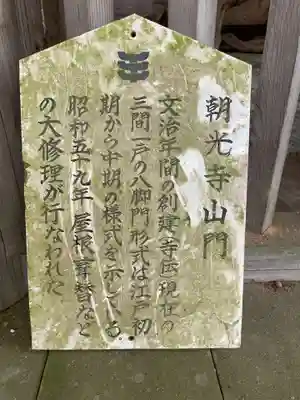 朝光寺山門
文治年間の創建（寺伝）現在の
三間一戸の八脚門形式は江戸初
期から中期の様式を示している
昭和五十九年 屋根葺替など
の大修理が行なわれた